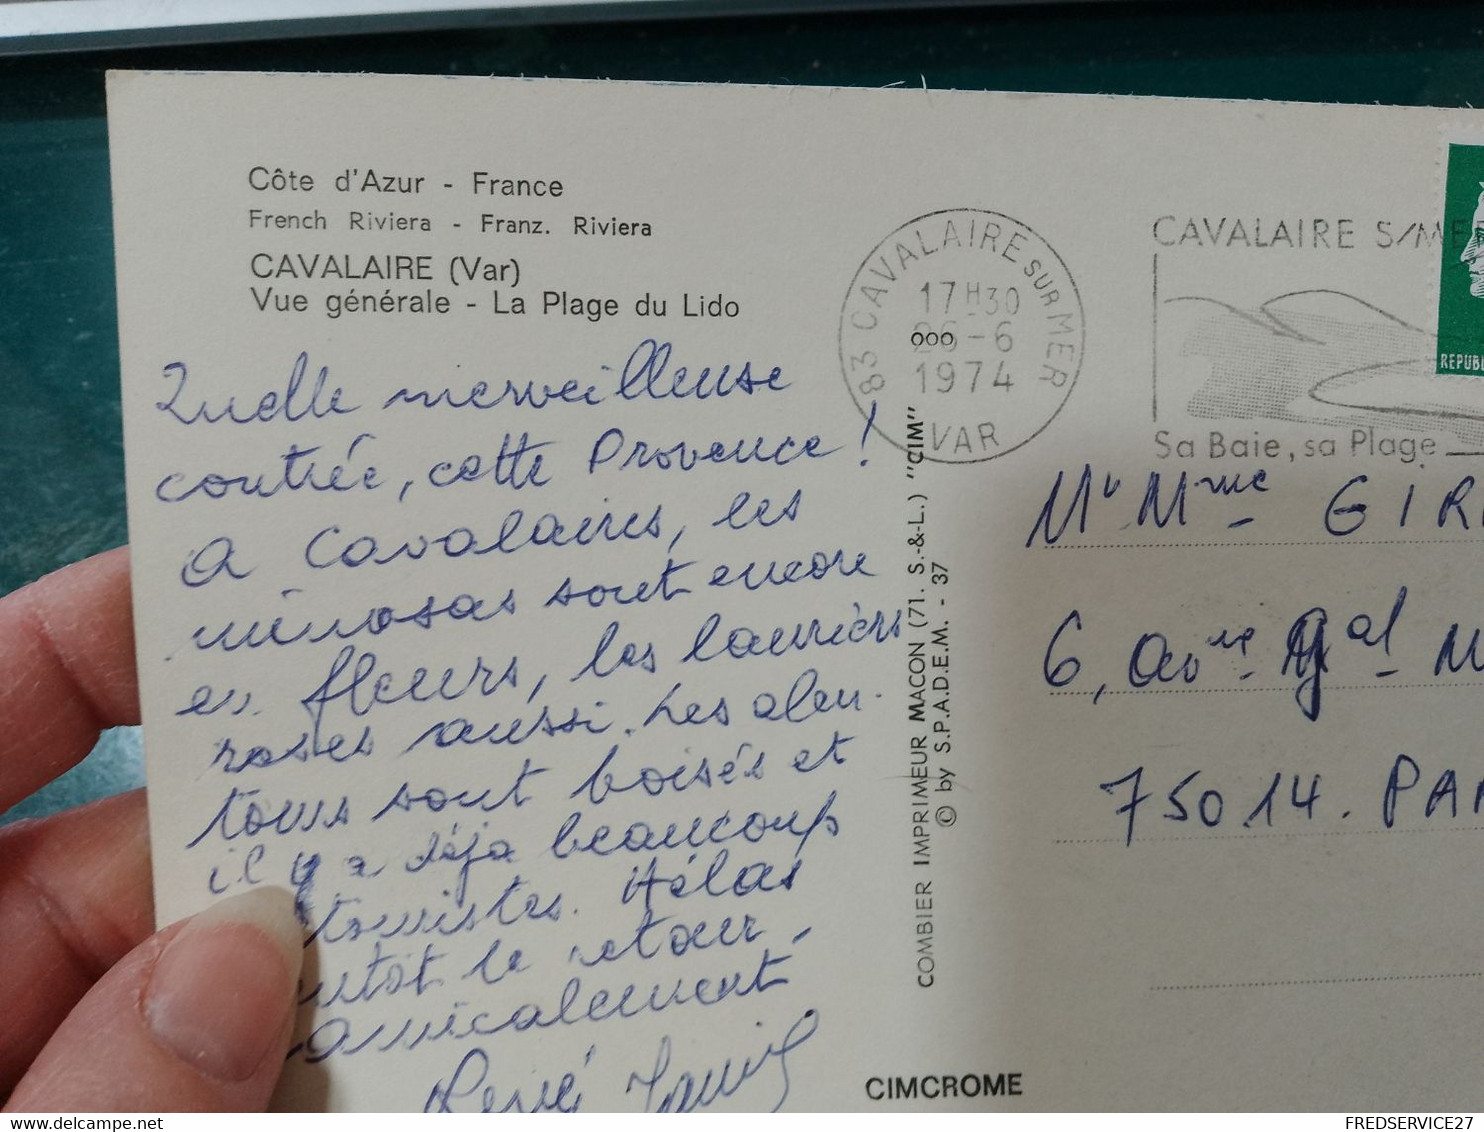 Côte d'Azur - France
French Riviera - Franz. Riviera
CAVALAIRE (Var)
Vue générale - La Plage du Lido
Quelle merveilleuse
contrée, cette Provence !
A Cavalaires, les
mimosas sont encore
en fleurs, les lauriers
roses aussi. Les alen-
tours sont boisés et
il y a déjà beaucoup
touristes. Hélas
le retour.
amicalement
René
83 CAVALAIRE SUR MER
17H30
26-6
1974
VAR
000
CAVALAIRE S/MER
Sa Baie, sa Plage
REPUB
COMBIER IMPRIMEUR MACON (71. S.-&-L.) "CIM"
© by S.P.A.D.E.M. - 37
Mr Mme GIR
6, Avnue Gal M
75014. PA
CIMCROME
delcampe.net
FREDSERVICE27